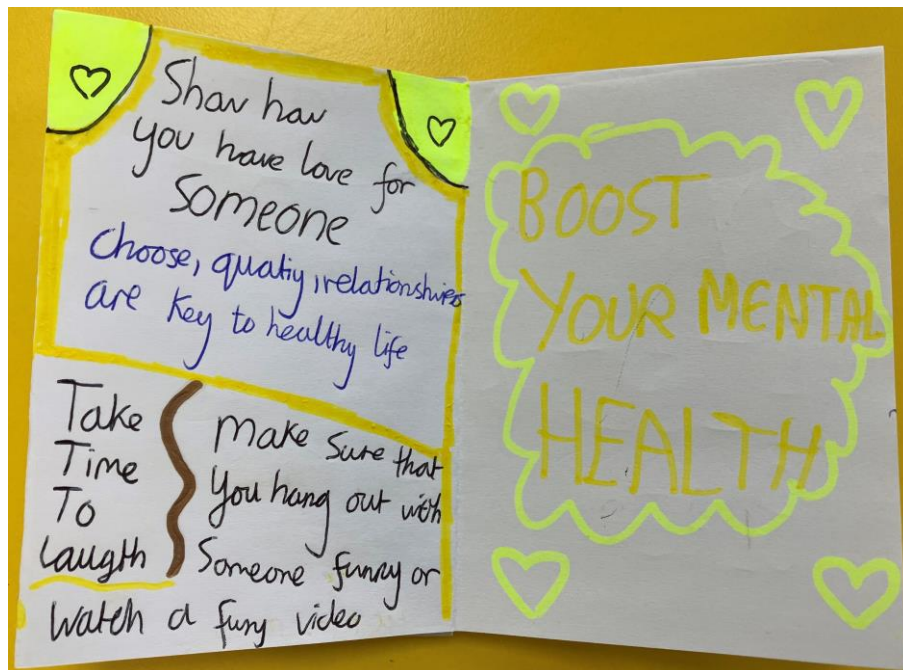 Show how
you have love for
SOMEONE
Choose, quatiy, relationships
are key to healthy life
Take
Time
To
Laugth
Make sure that
you hang out with
Someone funny or
Watch a funy video
BOOST
YOUR MENTAL
HEALTH